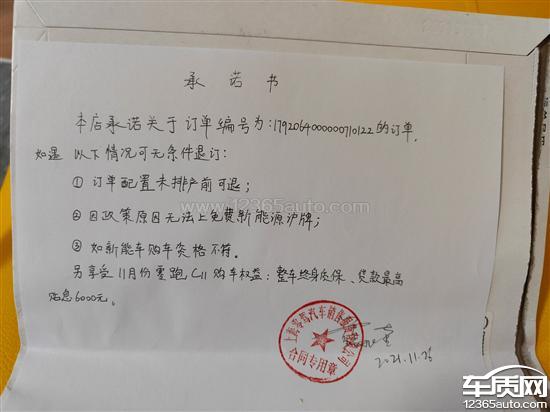 承诺书
本店承诺关于订单编号为:1792064000000710122的订单.
如是 以下情况可无条件退订:
①订单配置未排产前可退;
②因政策原因无法上免费新能源沪牌;
③如新能车购车资格不符.
另享受11月份零跑C11购车权益:整车终身质保、贷款最高
贴息6000元。
合同专用章
2021.11.26
www.12365auto.com
车质网
12365auto.com